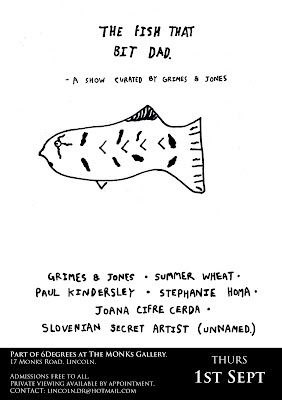 THE FISH THAT
BIT DAD.
- A SHOW CURATED BY GRIMES & JONES
GRIMES & JONES · SUMMER WHEAT ·
PAUL KINDERSLEY · STEPHANIE HOMA ·
JOANA CIFRE CERDA ·
SLOVENIAN SECRET ARTIST (UNNAMED.)
PART OF 6DEGREES AT THE MONKS GALLERY.
17 MONKS ROAD, LINCOLN.
ADMISSIONS FREE TO ALL.
PRIVATE VIEWING AVAILABLE BY APPOINTMENT.
CONTACT: LINCOLN.DR@HOTMAIL.COM
THURS
1ST SEPT